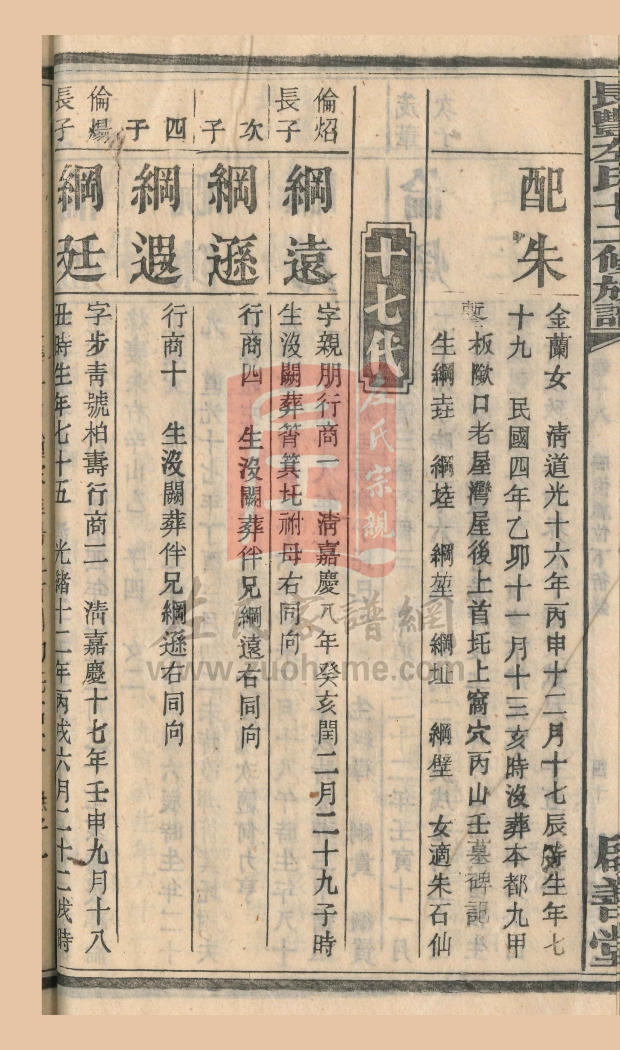 長豐左氏十二修族譜
啟善堂
配朱
金蘭女 清道光十六年丙申十二月十七辰時生年七
十九 民國四年乙卯十一月十三亥時沒葬本都九甲
板歟口老屋灣屋後上首圫上窩穴丙山壬墓碑記
生綱垚 綱堎 綱堃 綱址 綱壁 女適朱石仙
十七代
倫炤
長子
綱遠
字親朋行商一 清嘉慶八年癸亥閏二月二十九子時
生沒闕葬筲箕圫祔母右同向
次子
綱遜
行商四 生沒闕葬伴兄綱遠右同向
四子
綱遐
行商十 生沒闕葬伴兄綱遜右同向
倫煬
長子
綱廷
字步青號柏壽行商二 清嘉慶十七年壬申九月十八
丑時生年七十五 光緒十二年丙戌六月二十二戌時
左氏宗親
左氏家譜網
www.zuohome.com